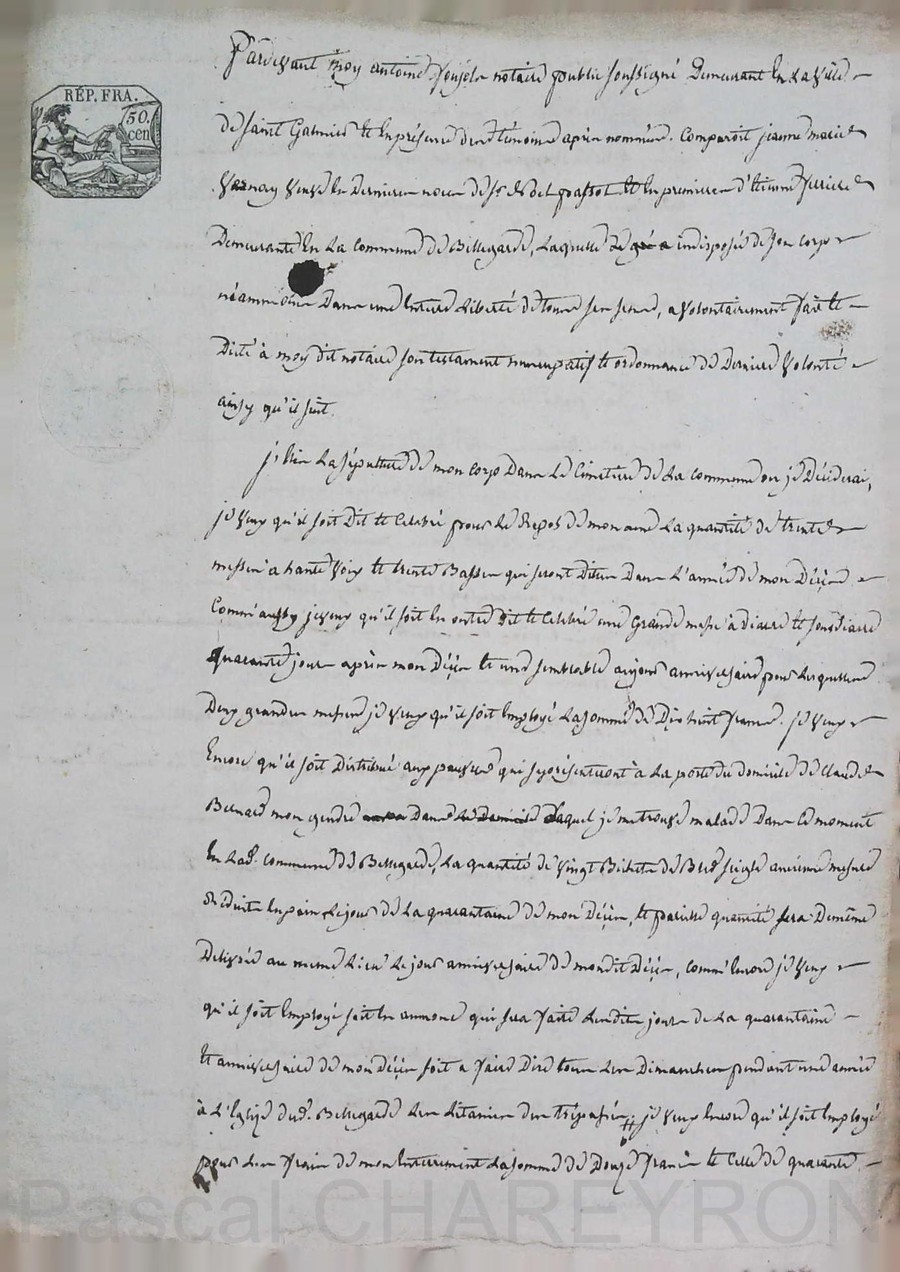 RÉP. FRA.
50.
cen
Pardevant moy antoine notaire public soussigné Demeurant En La Ville
de saint Galmier et En présence des témoins après nommés. Comparoit jeanne marie
veuve En Dernieres noces de passot et En premieres d'Etienne
Demeurante En La Commune de Bellegarde, Laquelle indisposée de son corps
néammoins Dans une Entiere Liberté de tous ses sens, a volontairement fait et
Dicté à moy dit notaire son testament nuncupatif et ordonnance de Derniere Volonté
ainsy qu'il suit.
j'Elis La sépulture de mon corps Dans Le Cimetiere de La commune ou je Déciderai,
je veux qu'il soit Dit et Celebré pour Le Repos de mon ame La quantité de trente
messes a haute voix et trente Basses qui seront Dites Dans L'année de mon Décès
Comm'aussy je veux qu'il soit En outre Dit et Celebré une Grande messe à Diacre et sousdiacre
quarante jours après mon Décès et une semblable au jour anniversaire pour Lesquelles
Deux grandes messes je veux qu'il soit Employé La somme de Dix huit francs. je veux
Encore qu'il soit Distribué aux pauvres qui se présenteront à La porte du domicile de Claude
Bernard mon gendre Dans Laquel je me trouve malade Dans ce moment
En Lad. commune de Bellegarde, La quantité de vingt Bichets de Bled seigle ancienne mesure
Reduits En pain Le jour de La quarantaine de mon Décès, et pareille quantité sera De même
Delivrée au meme Lieu Le jour anniversaire de mondit Décès, comm'Encore je veux
qu'il soit Employé soit En aumone qui sera faite Lesdits jours de La quarantaine
et anniversaire de mon Décès soit a faire Dire tous Les Dimanches pendant une année
à L'Eglize dud. Bellegarde Les Litanies Des trépassés; je veux Encore qu'il soit Employé
pour Les frais de mon Enterrement La somme de Douze francs et Celle de quarante
Pascal CHAREYRON